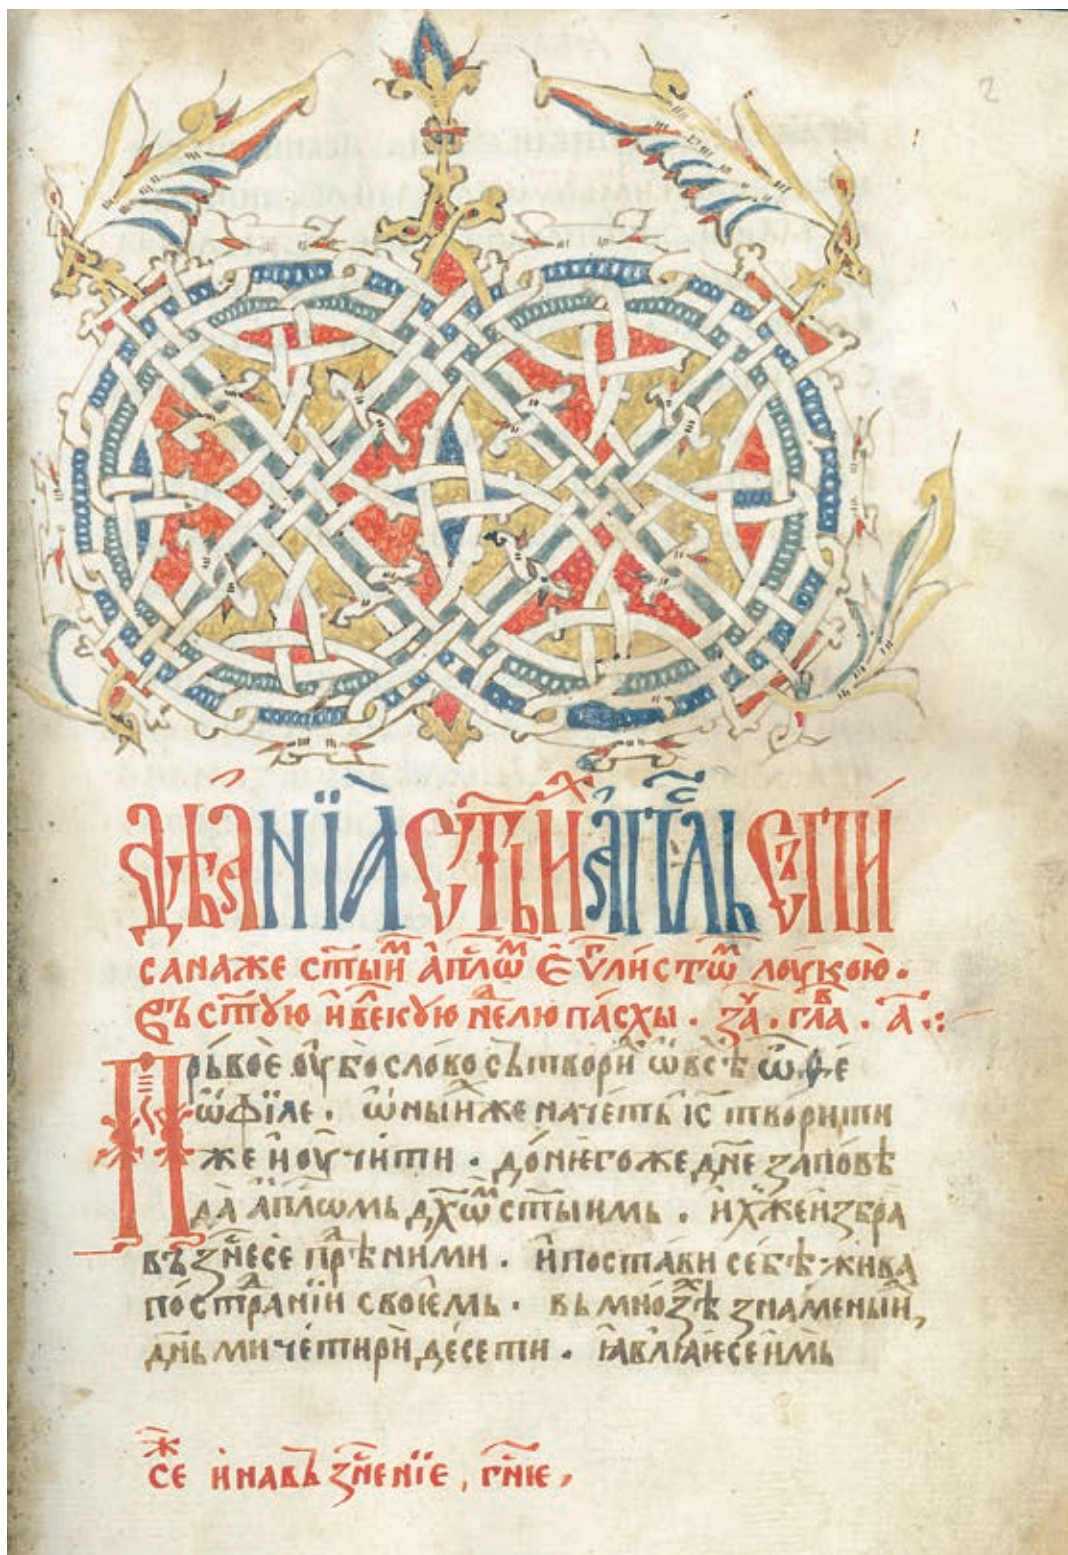 2
Дѣꙗнїа ст҃ыⷯ а҆пⷭ҇ль сꙿпи
санаже ст҃ыиⷨ а҆пⷭ҇лѡⷨ і҆ еѵⷢ҇листѡⷨ лоукою.
Въ ст҃ꙋю и҆ веⷧ҇кꙋю неⷣ҇лю пасхы. заⷱ҇. глаⷡ҇. а҃ ⁘
Прьвое ᲂу҆бо слово сьтвориⷯ ѡ҆ всѣⷯ ѽ ѳе
ѡ҆фїле. ѡ҆ ныиⷯже начеть і҆с҃ творити
же и҆ оу҆чити. до нѥгоже дн҃е заповѣ
да а҆пⷭ҇лѡмь дх҃ѡⷨ ст҃ыимь. и҆хже и҆збра
въꙁнесе прѣⷣ ними. и҆ постави себѣ жива
по страⷣнїи своѥмь. вь мноꙁѣⷯ ꙁнаменыиⷯ,
дн҃ьми четирⸯи десети. ꙗ҆влꙗѥ се имь
сеⷤ и на въꙁнⷭ҇енїе, гн҃ѥ,